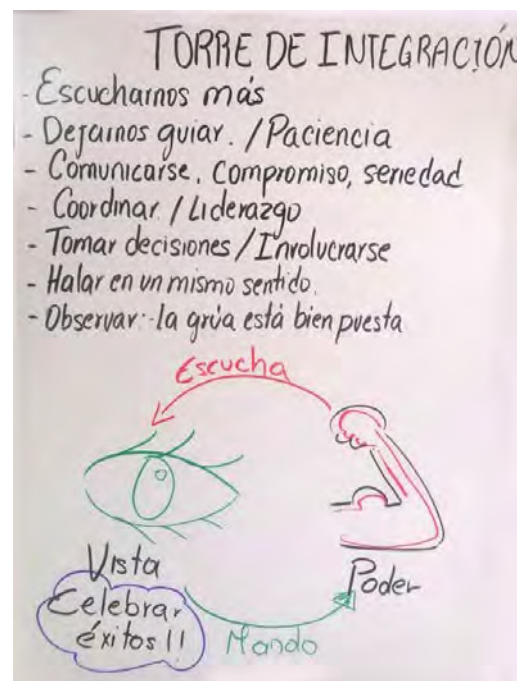 TORRE DE INTEGRACIÓN
- Escucharnos más
- Dejarnos guiar. / Paciencia
- Comunicarse, compromiso, seriedad
- Coordinar / Liderazgo
- Tomar decisiones / Involucrarse
- Halar en un mismo sentido.
- Observar: la grúa está bien puesta
Escucha
Vista
Poder
Celebrar
éxitos!!
Mando